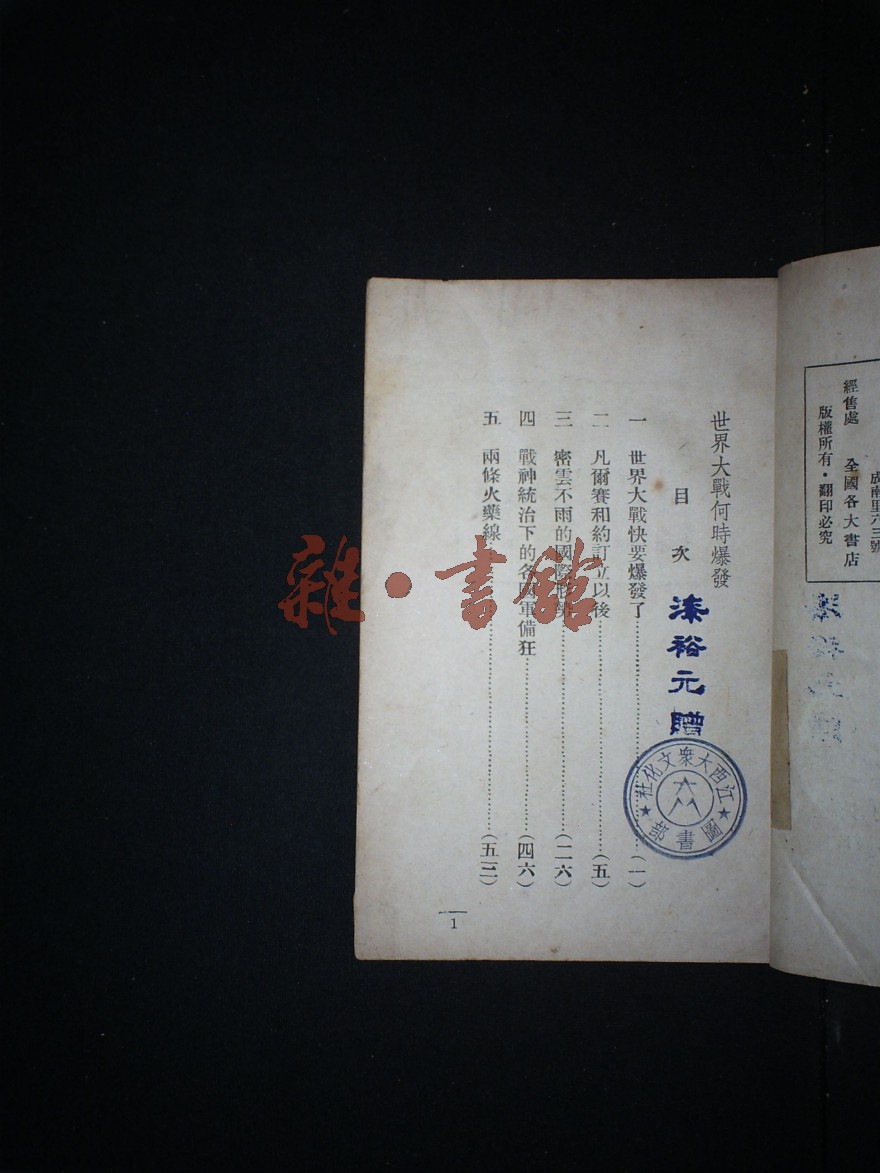 經售處 全國各大書店
版權所有·翻印必究
世界大戰何時爆發
目次
一 世界大戰快要爆發了……(一)
二 凡爾賽和約訂立以後……(五)
三 密雲不雨的國際……(二六)
四 戰神統治下的各國軍備狂……(四六)
五 兩條火藥線……(五三)
1
裕元贈
江西大衆文化社
圖書部
雜·書館